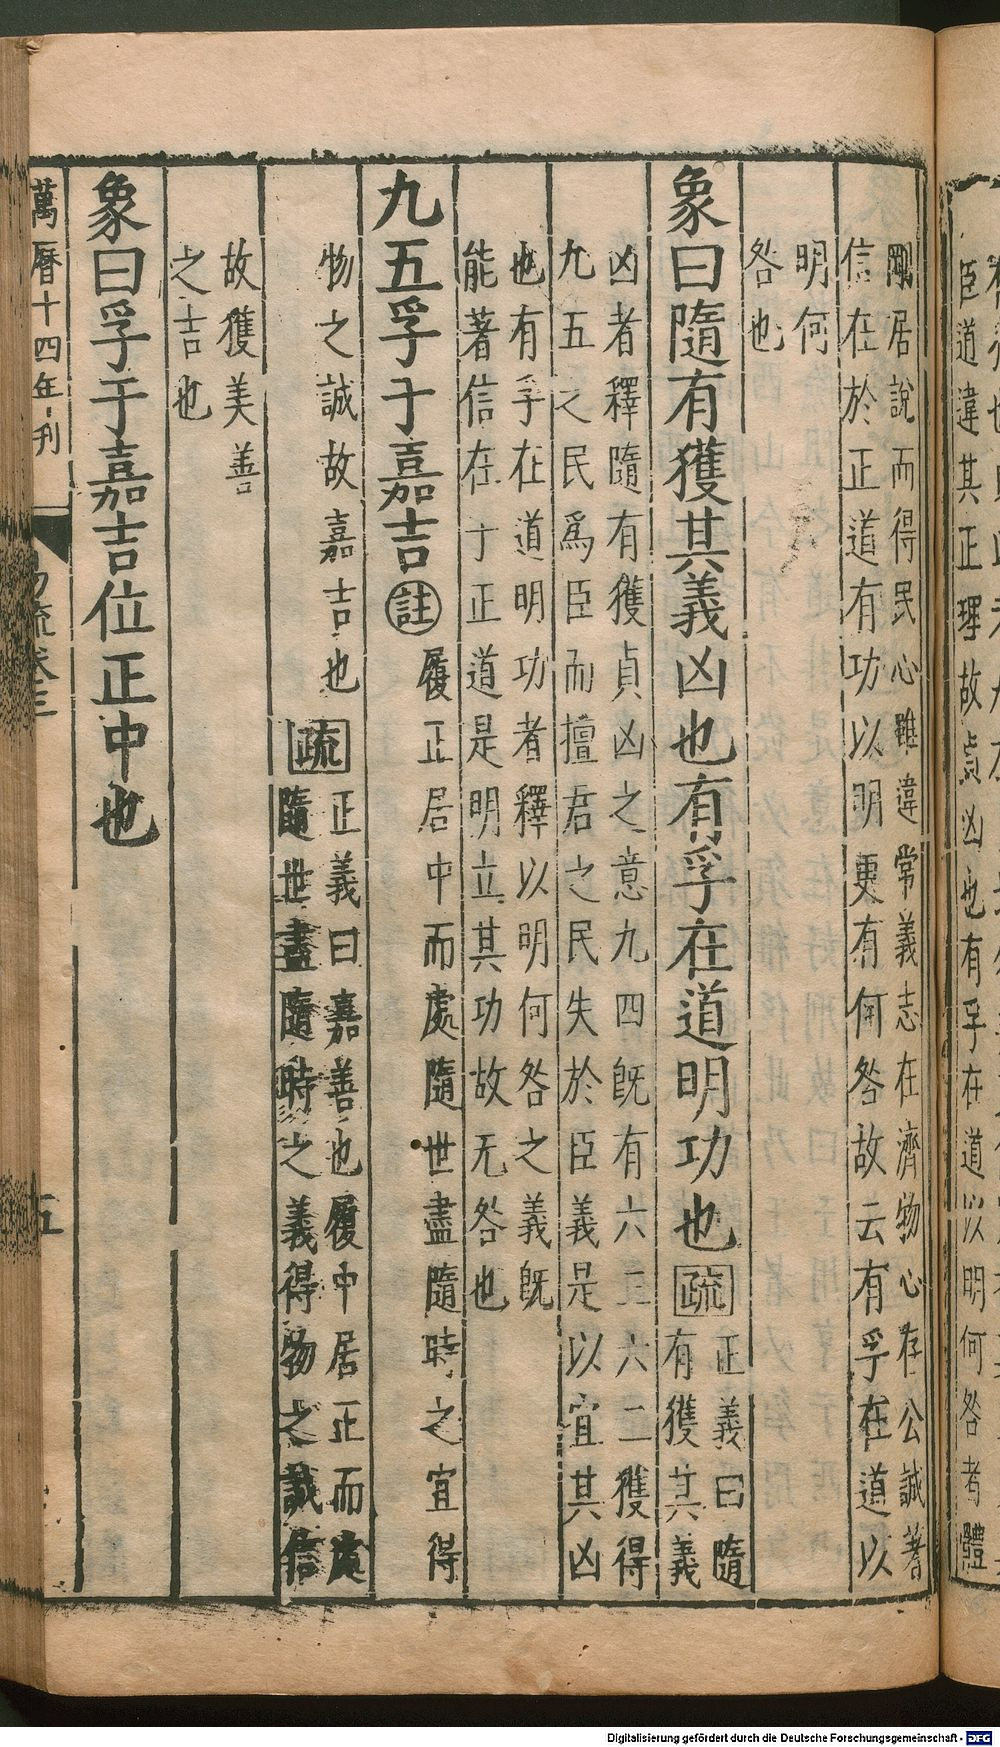 剛居說而得民心雖違常義志在濟物心存公誠著
信在於正道有功以明更有何咎故云有孚在道以
明何
咎也
象曰隨有獲其義凶也有孚在道明功也疏
正義曰隨
有獲其義
凶者釋隨有獲貞凶之意九四旣有六三六二獲得
九五之民爲臣而擅君之民失於臣義是以宜其凶
也有孚在道明功者釋以明何咎之義旣
能著信在于正道是明立其功故无咎也
九五孚于嘉吉註
履正居中而處隨世盡隨時之宜得
物之誠故嘉吉也疏
正義曰嘉善也履中居正而處
隨世盡隨時之義得物之誠信
故獲美善
之吉也
象曰孚于嘉吉位正中也
萬曆十四年刊
易疏卷三
五
臣道違其正理故貞凶也有孚在道以明何咎者體
Digitalisierung gefördert durch die Deutsche Forschungsgemeinschaft - DFG